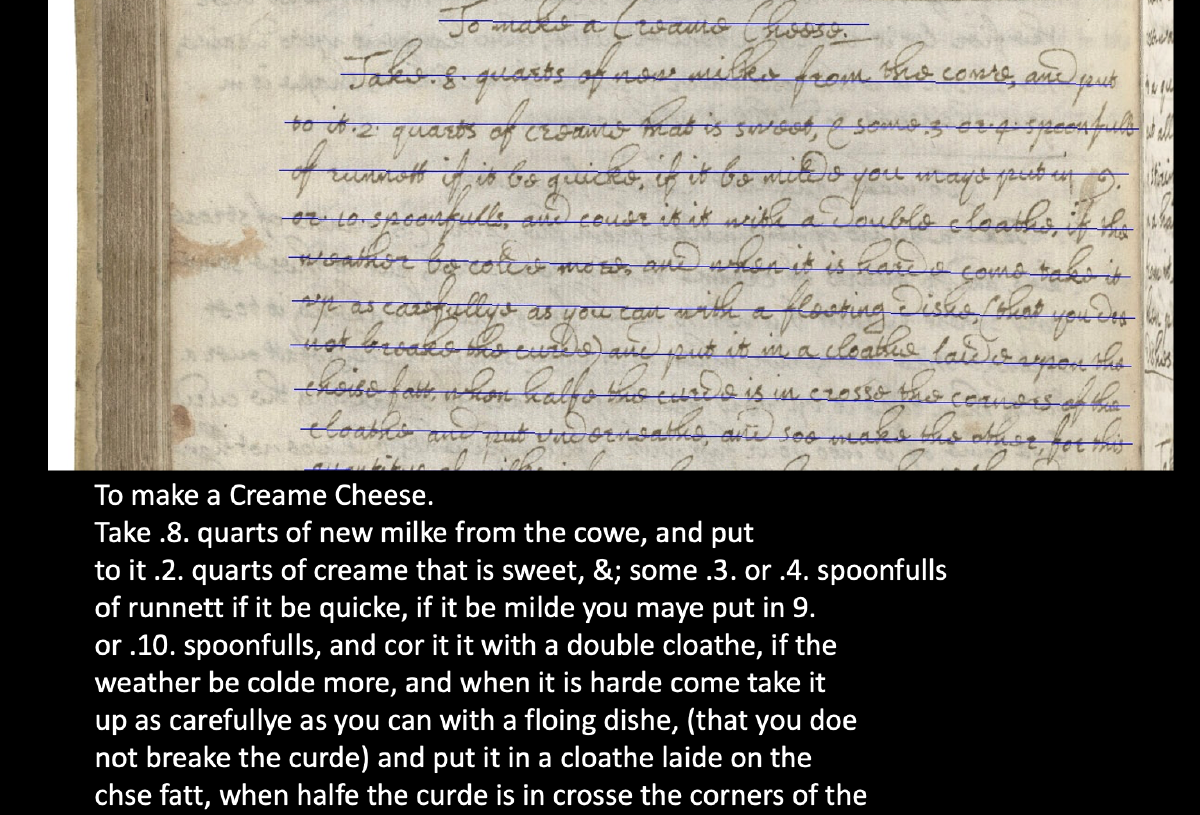 To make a Creame Cheese.
Take .8. quarts of new milke from the cowe, and put
to it .2. quarts of creame that is sweet, & some .3. or .4. spoonfulls
of runnett if it be quicke, if it be milde you maye put in 9.
or .10. spoonfulls, and couer it it with a double cloathe, if the
weather be colde more, and when it is harde come take it
vp as carefullye as you can with a fleeting dishe, (that you doe
not breake the curde) and put it in a cloathe laide vpon the
cheise fatt, when halfe the curde is in crosse the corners of the
cloathe and put vnderneathe, and soe make the other, for this
To make a Creame Cheese.
Take .8. quarts of new milke from the cowe, and put
to it .2. quarts of creame that is sweet, &; some .3. or .4. spoonfulls
of runnett if it be quicke, if it be milde you maye put in 9.
or .10. spoonfulls, and cor it it with a double cloathe, if the
weather be colde more, and when it is harde come take it
up as carefullye as you can with a floing dishe, (that you doe
not breake the curde) and put it in a cloathe laide on the
chse fatt, when halfe the curde is in crosse the corners of the